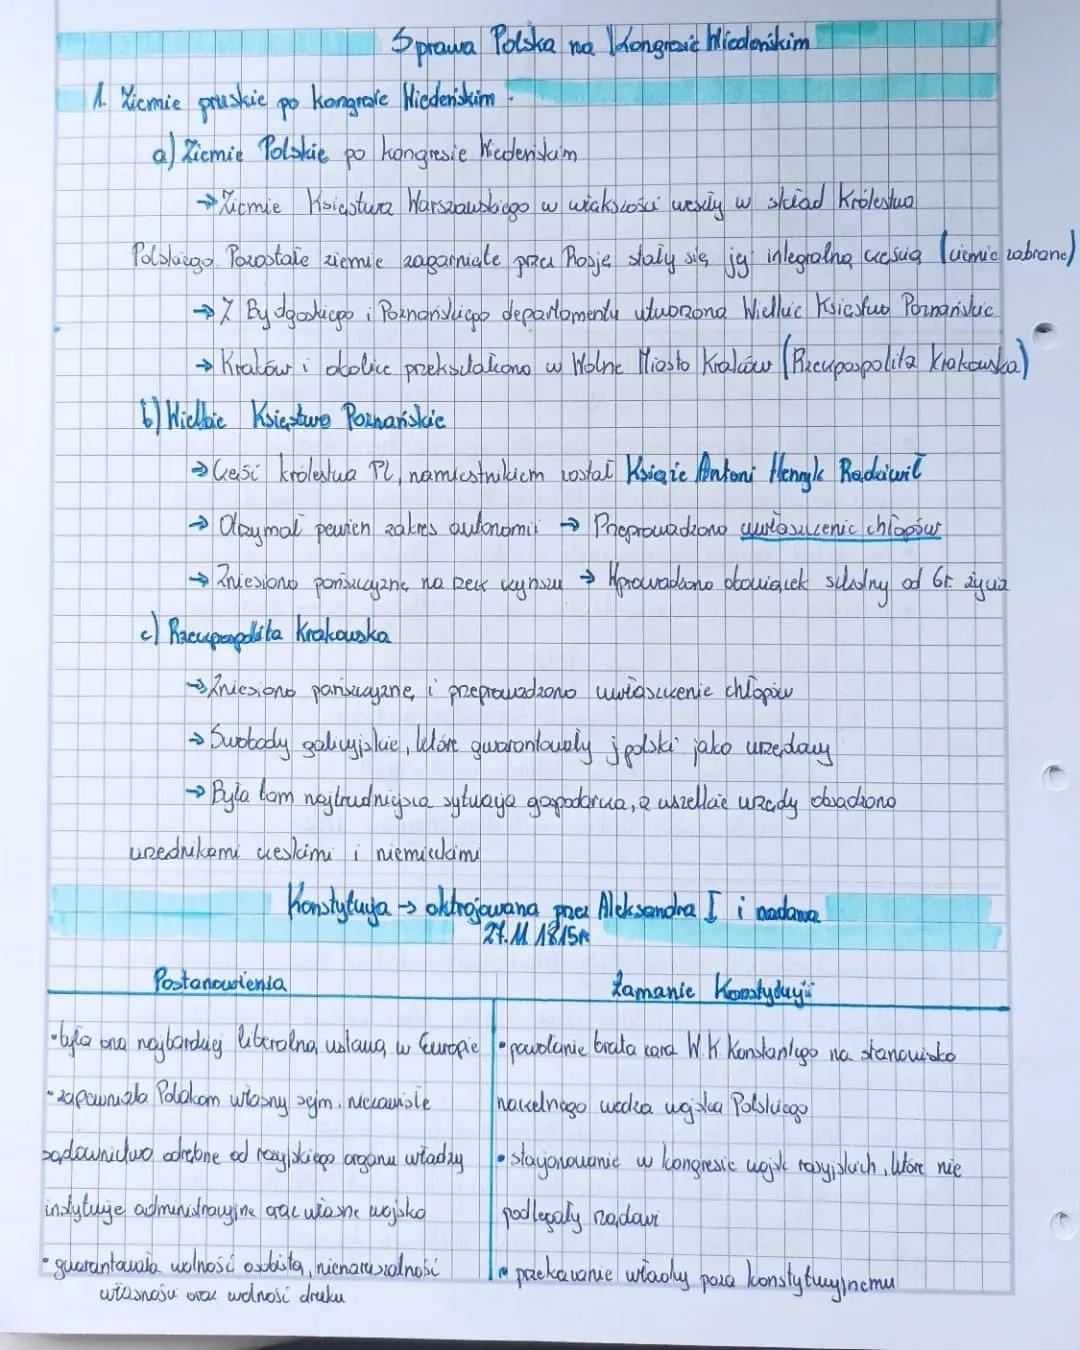 Sprawa Polska na Kongresie Wiedeńskim
1. Ziemie pruskie po kongresie Wiedeńskim.
a) Ziemie Polskie po kongresie Wiedeńskim
→ Ziemie Księstwa Warszawskiego w większości weszły w skład Królestwa
Polskiego. Pozostałe ziemie zagarnięte przez Rosję stały się jej integralną częścią (ziemie zabrane)
→ Z Bydgoskiego i Poznańskiego departamentu utworzono Wielkie Księstwo Poznańskie
→ Kraków i okolice przekształcono w Wolne Miasto Kraków (Rzeczpospolita Krakowska)
b) Wielkie Księstwo Poznańskie
→ Część królestwa PL, namiestnikiem został Książe Antoni Henryk Radziwił
→ Otrzymał pewien zakres autonomii → Przeprowadzono uwłaszczenie chłopów
→ Zniesiono pańszczyznę na rzecz czynszu → Wprowadzono obowiązek szkolny od 6r. życia
c) Rzeczpospolita Krakowska
→ Zniesiono pańszczyznę i przeprowadzono uwłaszczenie chłopów
→ Swobody galicyjskie, które gwarantowały j polski jako urzędowy
→ Była tam najtrudniejsza sytuacja gospodarcza, a wszelkie urzędy obsadzono
urzednikami czeskimi i niemieckimi
Konstytucja → oktrojowana przez Aleksandra I i nadana
27.11 1815r
Postanowienia
Łamanie Konstytucji
• była ona najbardziej liberalną ustawą w Europie
• zapewniała Polakom własny sejm, niezawisłe
sądownictwo odrębne od rosyjskiego organu władzy
instytucje administracyjne oraz własne wojsko
• gwarantowała wolność osobistą, nienaruszalność
własności oraz wolność druku
• powołanie brata cara W.K. Konstantego na stanowisko
naczelnego wodza wojska Polskiego
• stacjonowanie w kongresie wojsk rosyjskich, które nie
podlegały rządowi
• przekazanie władzy poza konstytucyjnemu